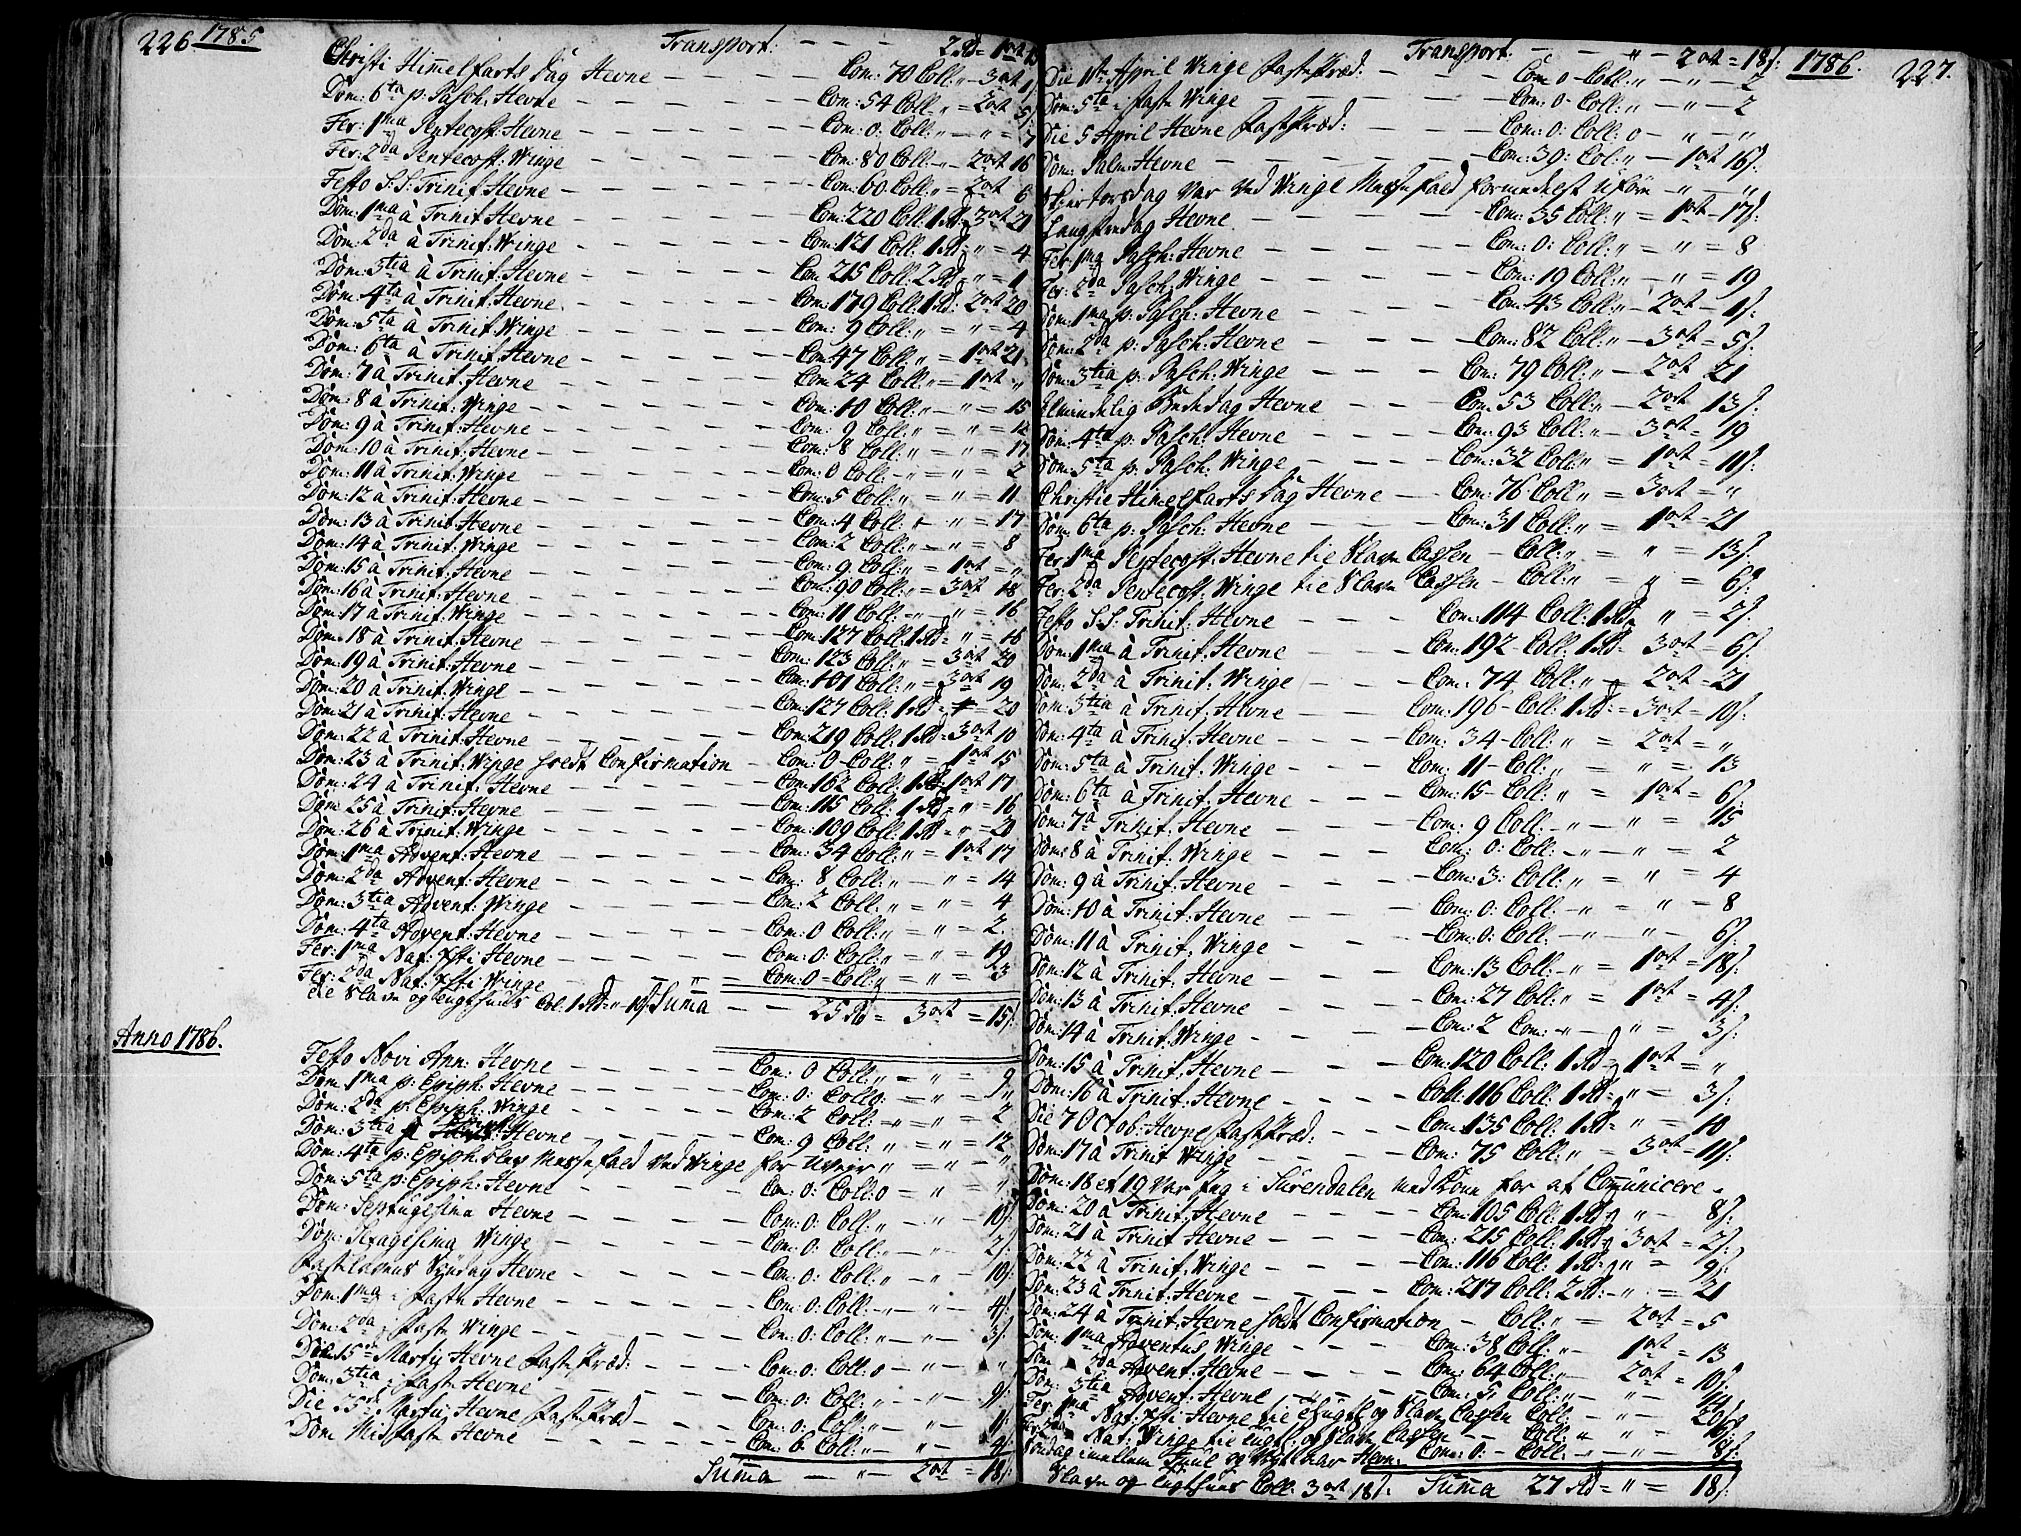 226 1785
Transport: — — — 2 Rd = 1 ort
Christi Himelfarts Dag Hevne — — — Com: 70 Coll: „ — 3 ort 1
Dom: 6ta p: Pasch: Hevne — — — Com: 54 Coll: „ = 2 ort 5
Fer: 1ma Pentecost: Hevne — — — Com: 0: Coll: „ — „ = 7
Fer: 2da Pentecost: Winge — — — Com: 80 Coll: „ — 2 ort 16
Festo S: S: Trinit: Hevne — — — Com: 60 Coll: „ = 2 ort 6
Dom: 1ma à Trinit: Hevne — — — Com: 220 Coll: 1 Rd: 3 ort 21
Dom: 2da à Trinit: Winge — — — Com: 121 Coll: 1 Rd: „ = 4
Dom: 3tia à Trinit: Hevne — — — Com 215 Coll: 2 Rd „ = 1
Dom: 4ta à Trinit: Hevne — — — Com: 179 Coll: 1 Rd: 2 ort 20
Dom: 5ta à Trinit: Winge — — — Com: 9 Coll: „ = „ = 4
Dom: 6ta à Trinit: Hevne — — — Com 47 Coll: „ = 1 ort 21
Dom: 7 à Trinit: Hevne — — — Com 24 Coll: „ = 1 ort „
Dom: 8 à Trinit: Winge — — — Com: 10 Coll: „ — „ = 15
Dom: 9 à Trinit: Hevne — — — Com: 9 Coll: „ = „ = 12
Dom: 10 à Trinit: Hevne — — — Com: 8 Coll: „ = „ = 17
Dom: 11 à Trinit: Winge — — — Com: 0 Coll: — „ = 2
Dom: 12 à Trinit: Hevne — — — Com: 5 Coll: „ = „ = 11
Dom: 13 à Trinit: Hevne — — — Com: 4 Coll: „ — „ = 17
Dom: 14 à Trinit: Winge — — — Com: 2 Coll: „ — „ = 8
Dom: 15 à Trinit: Hevne — — — Com: 9 Coll: „ = 1 ort = „
Dom: 16 à Trinit: Hevne — — — Com: 90 Coll: „ = 3 ort 18
Dom: 17 à Trinit: Winge — — — Com: 11 Coll: „ — „ = 16
Dom: 18 à Trinit: Hevne — — — Com: 127 Coll: 1 Rd = „ = 16
Dom: 19 à Trinit: Hevne — — — Com: 123 Coll: „ = 3 ort 20
Dom: 20 à Trinit: Winge — — — Com: 101 Coll: „ = 3 ort 19
Dom: 21 à Trinit: Hevne — — — Com: 127 Coll: 1 Rd = „ = 20
Dom: 22 à Trinit: Hevne — — — Com: 219 Coll: 1 Rd = 3 ort 10
Dom: 23 à Trinit: Winge holdt Confirmation — Com: 0 Coll: „ = 1 ort 15
Dom: 24 à Trinit: Hevne — — — Com: 162 Coll: 1 Rd 1 ort 17
Dom 25 à Trinit: Hevne — — — Com: 115 Coll: 1 Rd = „ = 16
Dom: 26 à Trinit: Winge — — — Com: 109 Coll: 1 Rd = „ = 20
Dom: 1ma Advent: Hevne — — — Com: 34 Coll: „ = 1 ort 17
Dom: 2da Advent: Hevne — — — Com: 8 Coll: „ — „ = 14
Dom: 3tia Advent: Winge — — — Com: 2 Coll: „ = „ = 4
Dom: 4ta Advent: Hevne — — — Com: 0 Coll: „ = „ = 2.
Fer: 1ma Nat: Xsti Hevne — — — Com: 0: Coll: „ = „ = 19
Fer: 2da Nat: Xsti Winge — — — Com: 0 - Coll: „ = „ = 23
Summa — — 25 Rd = 3 ort = 15 s:
Anno 1786.
Festo Novi Ann: Hevne — — — Com: 0 Coll: „ = „ = 9
Dom 1ma p: Epiph: Hevne — — — Com: 0: Coll: 0: = „ = „
Dom: 2da p: Epiph: Winge — — — Com: 2 Coll: „ = „ = 2
Dom: 3tia Hevne — — — Com: 9 Coll: „ = „ = 12
Dom: 4ta p: Epiph: blev Messefald ved Winge for Uveir „ = „ = „
Dom: 5ta p: Epiph: Hevne — — — Com: 0: Coll: 0 = „ = „
Dom: Septugesina Hevne — — — Com: 0: Coll: „ — „ — 10 s:
Dom: Sexagesima Winge — — — Com: 0: Coll: „ — „ — 2 s:
Fastelavns Søndag Hevne — — — Com: 0: Coll: „ — „ — 10 s:
Dom: 1ma i Faste Hevne — — — Com: 0: Coll: „ — „ — 4 s:
Dom: 2da i Faste Winge — — — Com: 0: Coll: „ — „ — 3 s:
Die 15de Martij Hevne Faste Præd: — — — Com: 0: Coll: 0 — „ — „
Dom: 3tia i Faste Hevne — — — Com: 0: Coll: „ — „ — 9 s:
Die 25de Martij Hevne Faste Præd — — — Com: 0: Coll: „ — „ —
Dom Midfaste Hevne — — — Com: 6 Coll: „ — „ —
Summa — „ — 2 ort = 18 s:
1786. 227.
Transport. — — „ — 2 ort = 18 s:
Die April Winge Faste Præd: — — — Com 0 - Coll: „ — „ — 2
Dom: 5ta i Faste Winge — — — Com: 0 - Coll: „ — „ — 2
Die 5 April Hevne Faste Præd: — — — Com: 0: Coll: 0 — „ — „
Dom: Palm: Hevne — — — Com: 39: Coll: „ — 1 ort 16 s:
Skiertorsdag var ved Winge Messefald formedelst Uføre „ — „
Langfredag Hevne — — — Com: 35 Coll: „ = 1 ort - 17 s:
Fer: 1ma Pasch: Hevne — — — Com: 0: Coll: „ = „ = 8
Fer: 2da Pasch: Winge — — — Com: 19 Coll: „ — „ = 19
Dom: 1ma p: Pasch: Hevne — — — Com: 43 Coll: „ — 2 ort — 1 s:
Dom: 2da p: Pasch: Hevne — — — Com: 82 Coll: „ — 3 ort = 5 s:
Dom: 3tia p: Pasch: Winge — — — Com: 79 Coll: „ — 2 ort 21
Almindelig Bededag Hevne — — — Com: 53 Coll: „ — 2 ort 13 s:
Dom: 4ta p: Pasch: Hevne — — — Com: 93 Coll: „ — 3 ort = 19
Dom: 5ta p: Pasch: Winge — — — Com: 32 Coll: „ = 1 ort = 10 s:
Christi Himelfarts Dag Hevne — — Com: 76 Coll „ = 3 ort = „
Dom: 6ta p: Pasch: Hevne — — — Com: 31 Coll: „ = 1 ort = 21
Fer: 1ma Pentecost: Hevne til Slave Cassen — Coll: „ = „ = 13 s:
Fer: 2da Pentecost: Winge til Slave Cassen — Coll: „ = „ = 6 s:
Festo S: S: Trinit: Hevne — — — Com: 114 Coll: 1 Rd „ = 2 s:
Dom: 1ma à Trinit: Hevne — — — Com: 192 - Coll: 1 Rd = 3 ort = 6 s:
Dom: 2da à Trinit: Winge — — — Com: 74 Coll: „ = 2 ort = 21
Dom: 3tia à Trinit: Hevne — — — Com: 196 - Coll: 1 Rd = 3 ort = 10 s:
Dom: 4ta à Trinit: Hevne — — — Com: 34 - Coll: „ = 2 ort = „
Dom: 5ta à Trinit: Winge — — — Com: 11 - Coll: „ = „ = 13
Dom: 6ta à Trinit: Hevne — — — Com: 15 - Coll: „ = 1 ort = 6 s:
Dom: 7 à Trinit: Hevne — — — Com: 9 Coll: — „ — „ = 15
Dom: 8 à Trinit: Winge — — — Com: 0: Coll: — „ — „ = 2
Dom: 9 à Trinit: Hevne — — — Com: 3: Coll: „ = „ = 4
Dom: 10 à Trinit: Hevne — — — Com: 0: Coll: — „ = „ = 8
Dom: 11 à Trinit: Winge — — — Com: 0: Coll: — „ — „ — 6 s:
Dom: 12 à Trinit: Hevne — — — Com: 13 Coll: — „ = 1 ort = 18 s:
Dom: 13 à Trinit: Hevne — — — Com: 27 Coll: „ = 1 ort = 4 s:
Dom: 14 à Trinit: Winge — — — Com: 2 Com: — „ — „ = 3 s:
Dom: 15 à Trinit: Hevne — — — Com: 120 Coll: 1 Rd = 1 ort = „
Dom: 16 à Trinit: Hevne — — — Com: 116 Coll: 1 Rd = „ = 3 s:
Die 7 Octob: Hevne Faste Præd: — — — Com: 135 Coll: 1 Rd = „ = 10
Dom: 17 à Trinit Winge — — — Com: 75 Coll: „ = 3 ort = 11 s:
Dom: 18 et 19 var Jeg i Surendalen med Kone for at Comunicere „
Dom: 20 à Trinit: Hevne — — — Com: 105 Coll: 1 Rd „ = 8 s:
Dom: 21 à Trinit Hevne — — — Com: 215 Coll: 1 Rd 3 ort = 2 s:
Dom: 22 à Trinit: Winge — — — Com: 116 Coll: 1 Rd = „ = 9 s:
Dom: 23 à Trinit: Hevne — — — Com: 217 Coll: 2 Rd: — „ = 21
Dom: 24 à Trinit: Hevne holdt Confirmation — Coll: „ = 2 ort = 5
Dom: 1ma Adventus Winge — — — Com: 38 Coll: „ — 1 ort = 13
Dom 2da Advent: Hevne — — — Com: 64 Coll: „ — 2 ort = 10 s:
Dom: 3tia Advent: Hevne — — — Com: 5 Coll: „ — „ —
Fer: 1ma Nat: Xsti Hevne til Tugt og Slave Cassen Coll: — „ — 20 s:
Fer: 2da Nat: Winge til Tugt og Slave Cassen — Coll: „ — „
Søndag imellem Juul og Nytt Aar Hevne Com: 0 - Coll: — „ — „ — 8 s:
Slave og Tugthuus Coll: 3 ort 18 s: Summa 27 Rd = „ = 18 s: